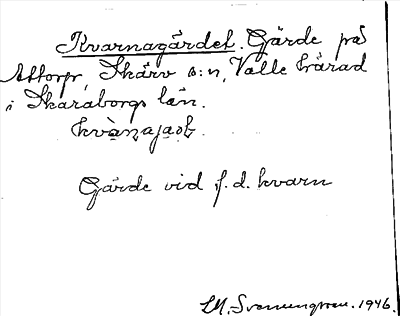 Kvarnagärdet. Gärde på
Attorp, Skärv s:n, Valle härad
i Skaraborgs län.
Gärde vid f.d. kvarn
1946.